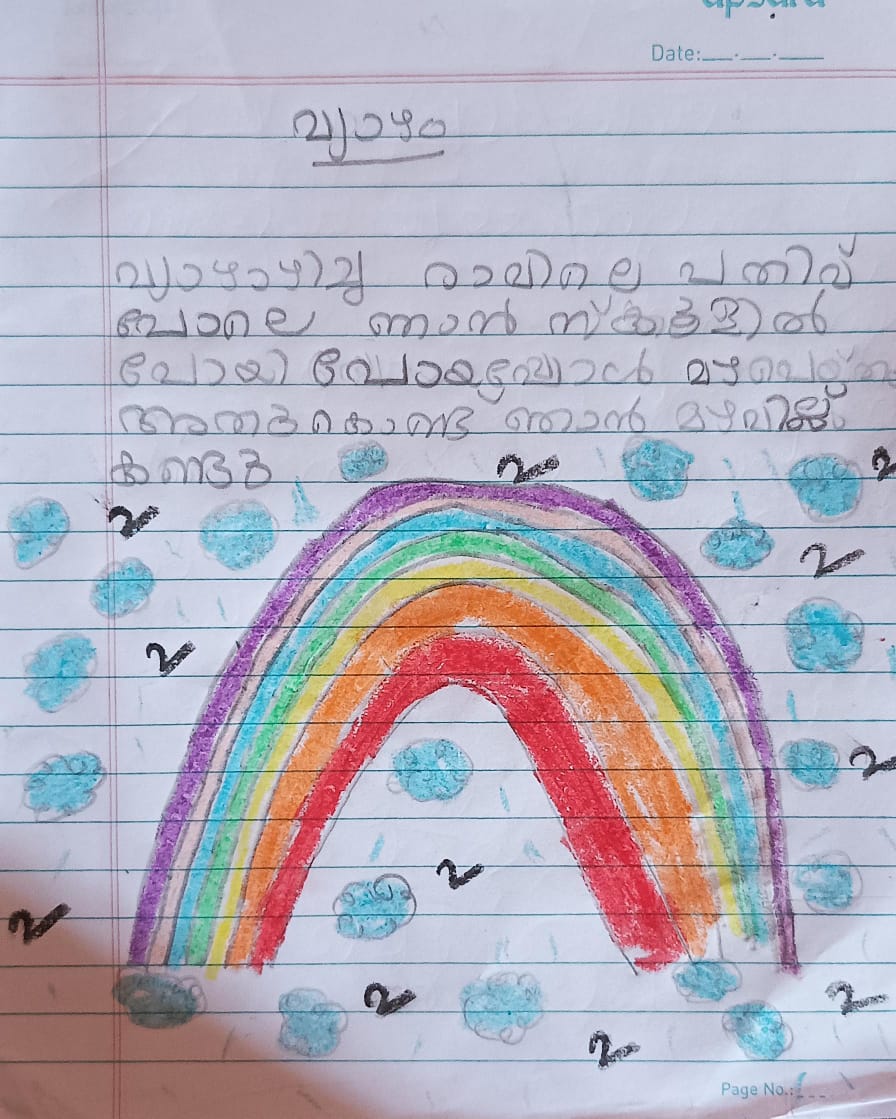 apsara
Date:
വ്യാഴം
വ്യാഴാഴിച്ച രാവിലെ പതിവ്
പോലെ ഞാൻ സ്കൂളിൽ
പോയി പോയപ്പോൾ മഴപെയ്തു
അതുകൊണ്ട് ഞാൻ മഴവില്ല്
കണ്ടു
Page No.: